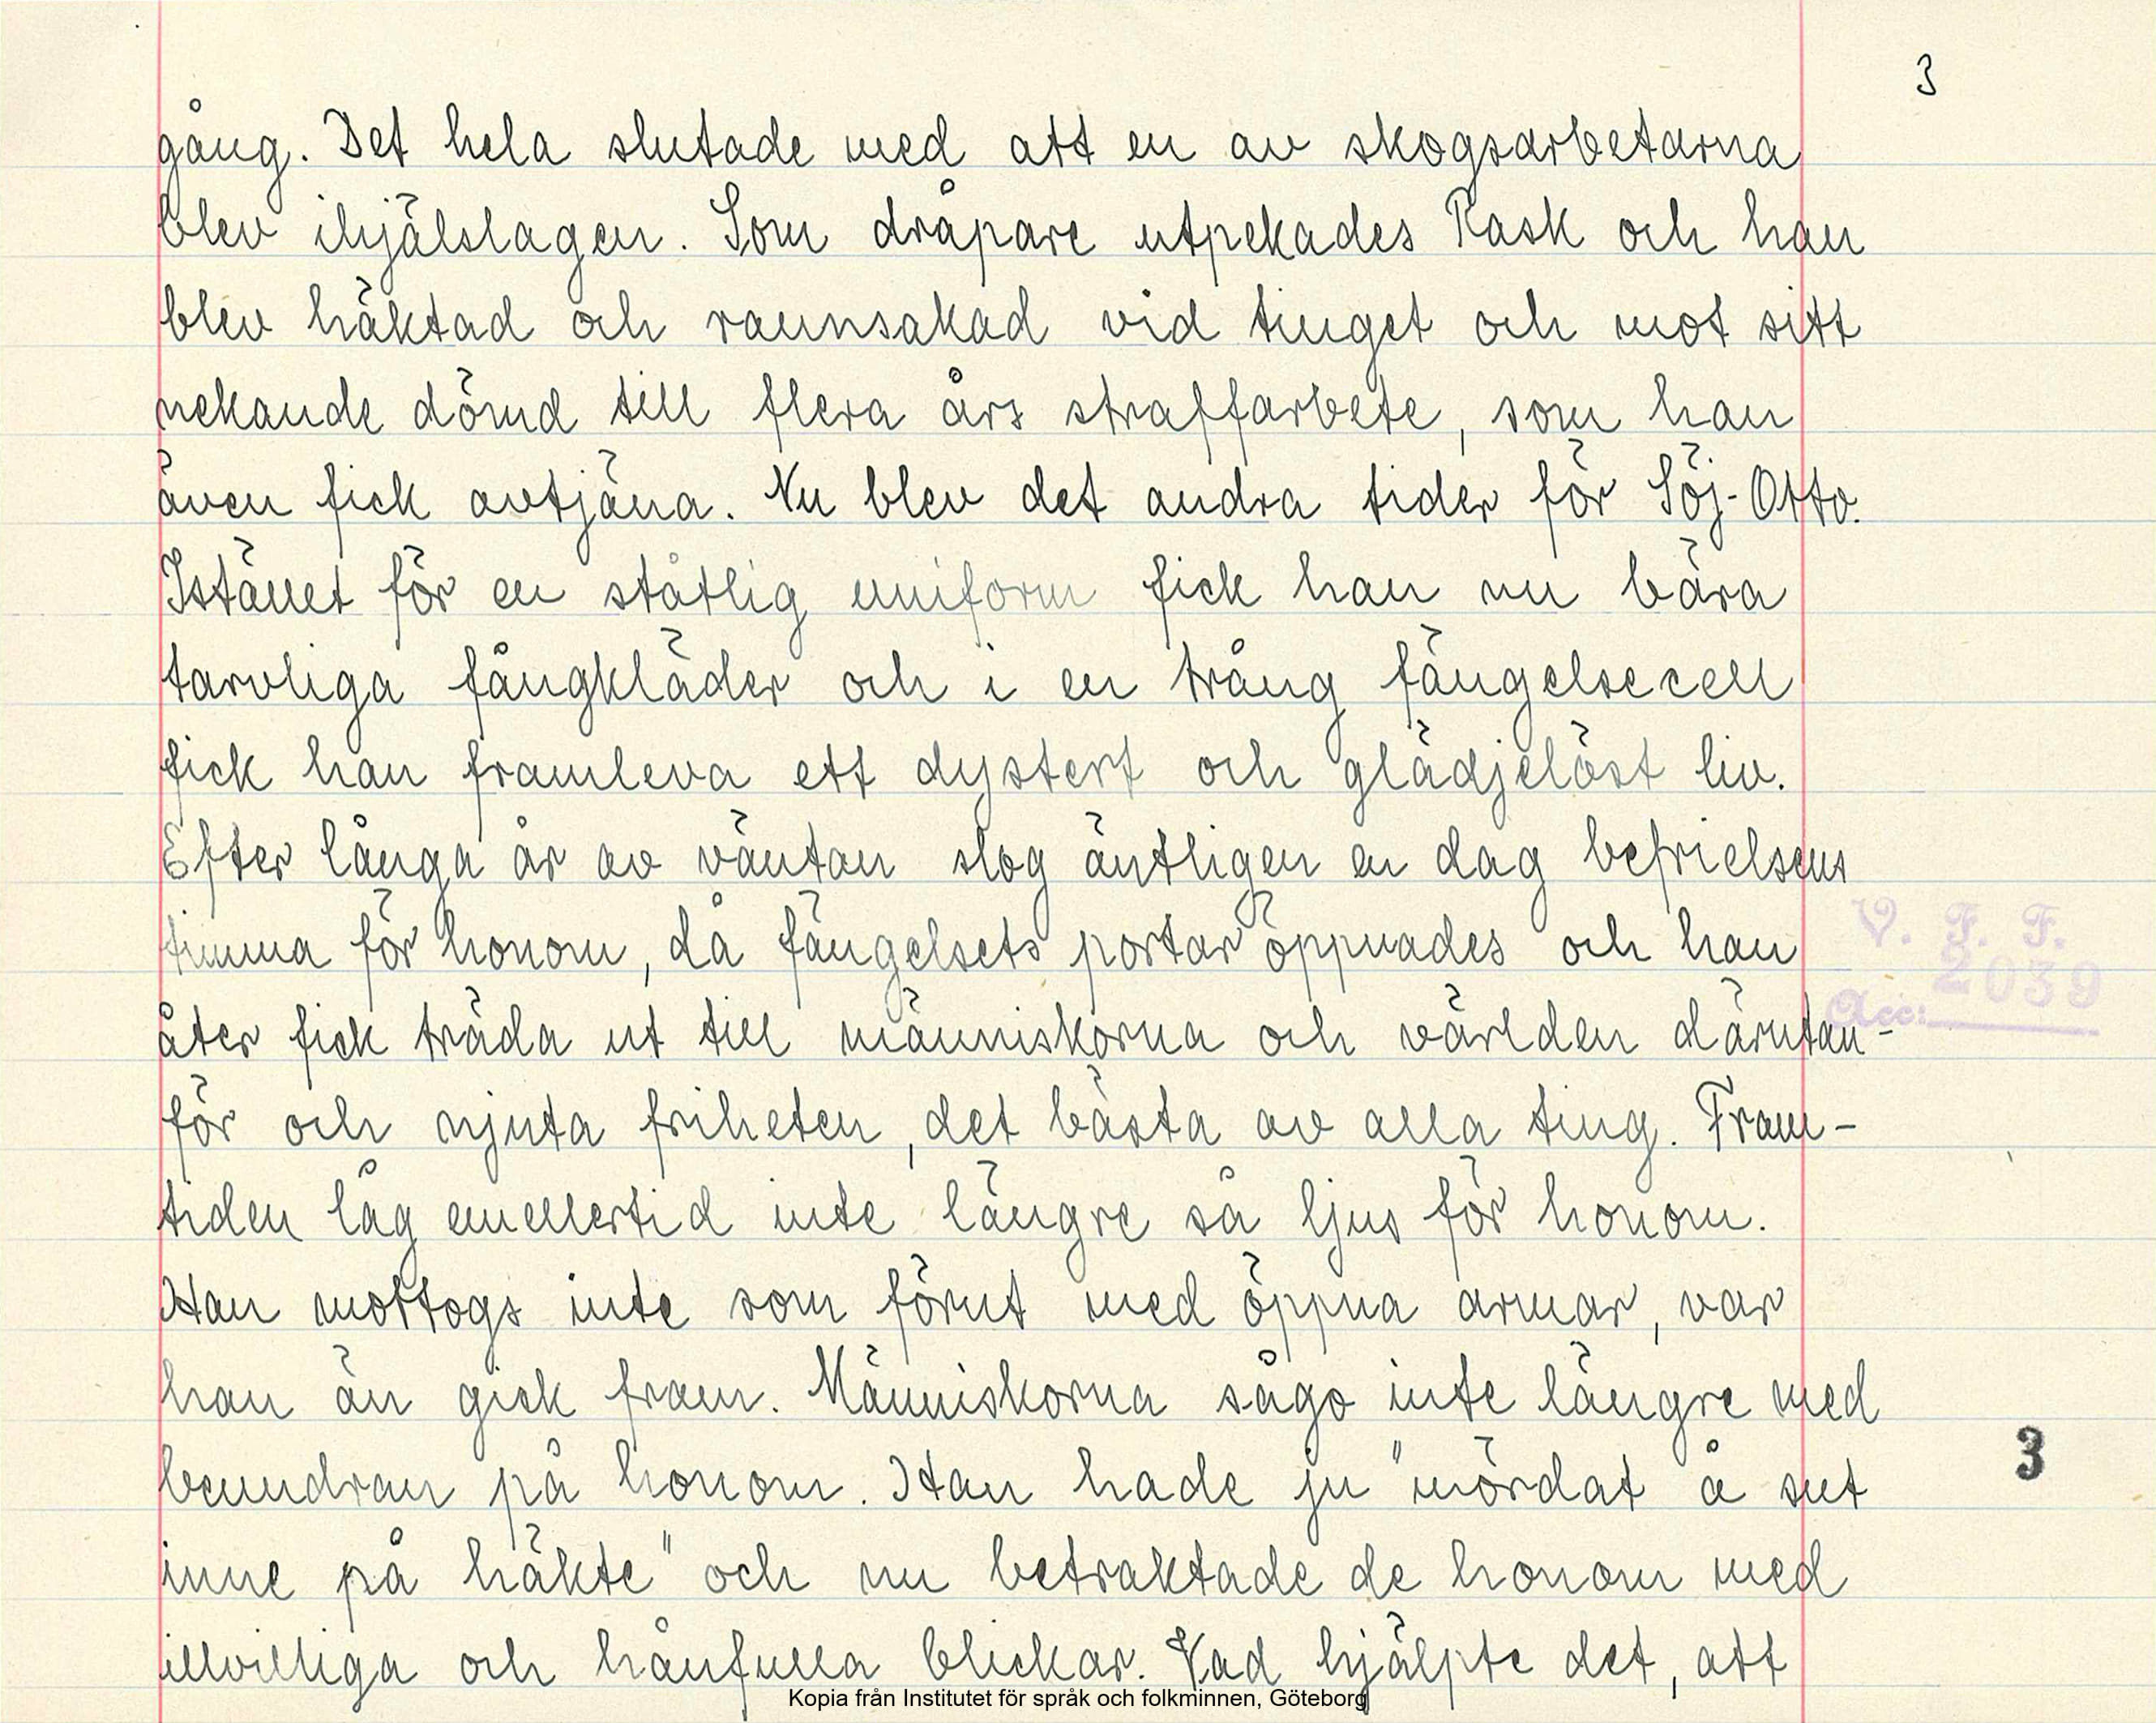 3
gång. Det hela slutade med att en av skogsarbetarna
blev ihjälslagen. Som dråpare utpekades Rask och han
blev häktad och rannsakad vid tinget och mot sitt
nekande dömd till flera års straffarbete, som han
även fick avtjäna. Nu blev det andra tider för Söj-Otto.
Istället för en ståtlig uniform fick han nu bära
tarvliga fångkläder och i en trång fängelsecell
fick han framleva ett dystert och glädjelöst liv.
Efter långa år av väntan slog äntligen en dag befrielsens
timma för honom, då fängelsets portar öppnades och han
åter fick träda ut till människorna och världen därutan-
för och njuta friheten, det bästa av alla ting. Fram-
tiden låg emellertid inte längre så ljus för honom.
Han mottogs inte som förut med öppna armar, var
han än gick fram. Människorna sågo inte längre med
beundran på honom. Han hade ju "mördat å sut
inne på häkte" och nu betraktade de honom med
illvilliga och hånfulla blickar. Vad hjälpte det, att
V. F. F.
Acc: 2039
3
Kopia från Institutet för språk och folkminnen, Göteborg